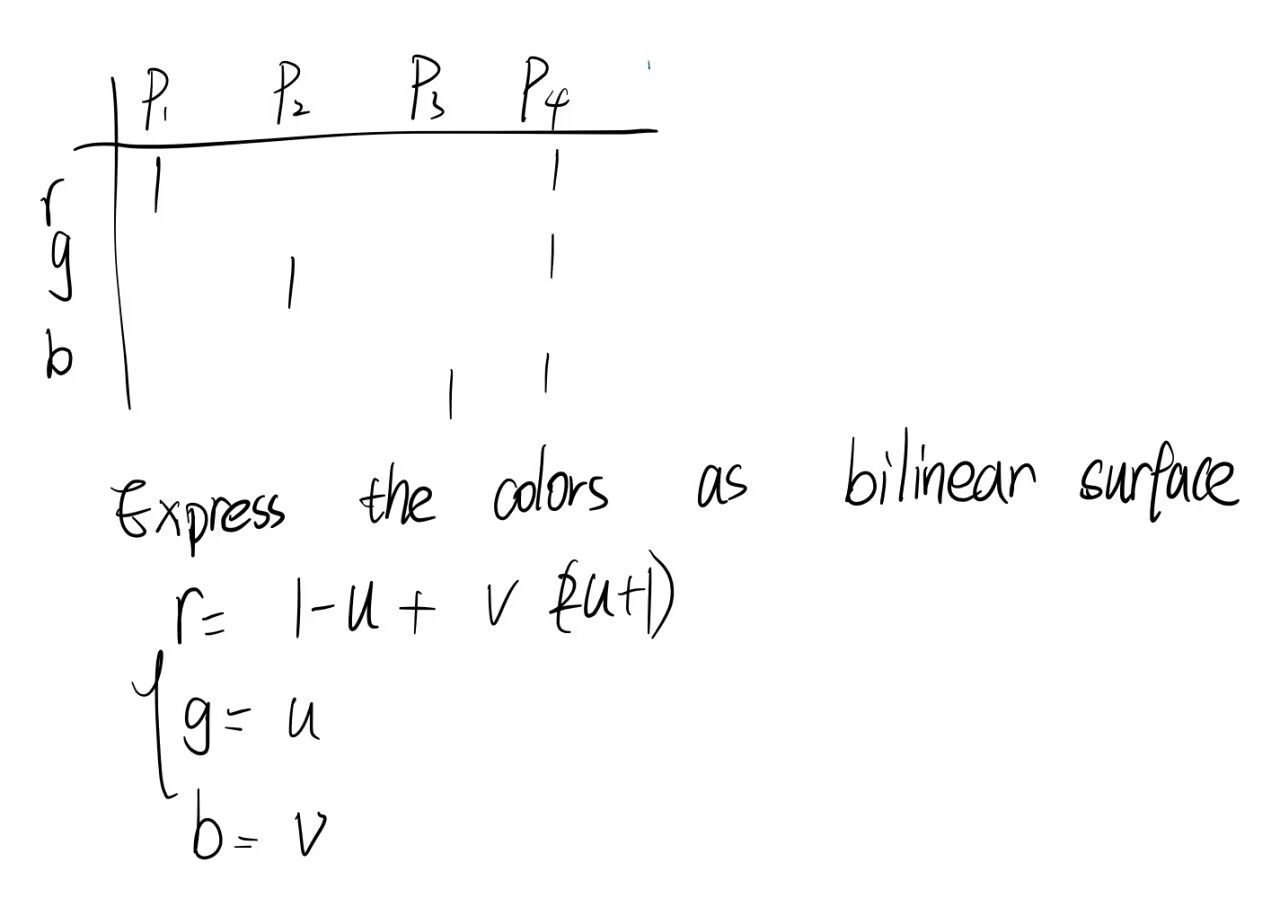 P₁ P₂ P₃ P₄
r 1 1
g 1 1
b 1 1
Express the colors as bilinear surface
r= 1-u + v (2u+1)
g= u
b= v